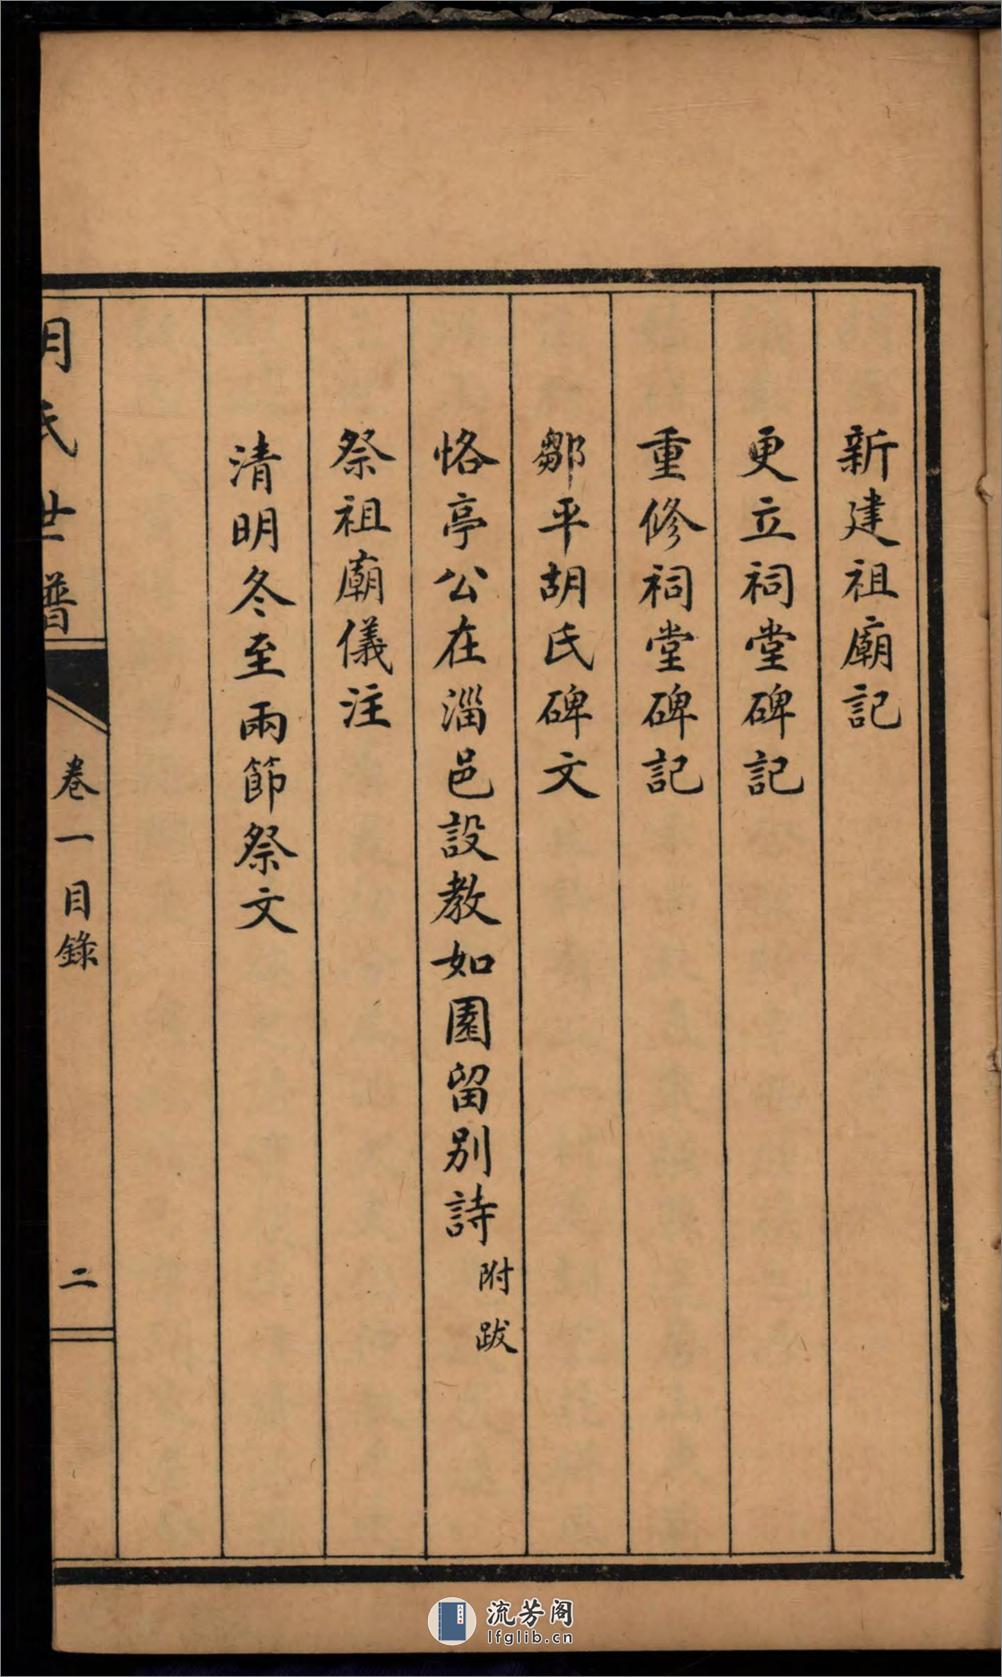 新建祖廟記
更立祠堂碑記
重修祠堂碑記
鄒平胡氏碑文
恪亭公在淄邑設教如園留別詩 附跋
祭祖廟儀注
清明冬至兩節祭文
胡氏世譜
卷一目錄
二
流芳阁
lfglib.cn